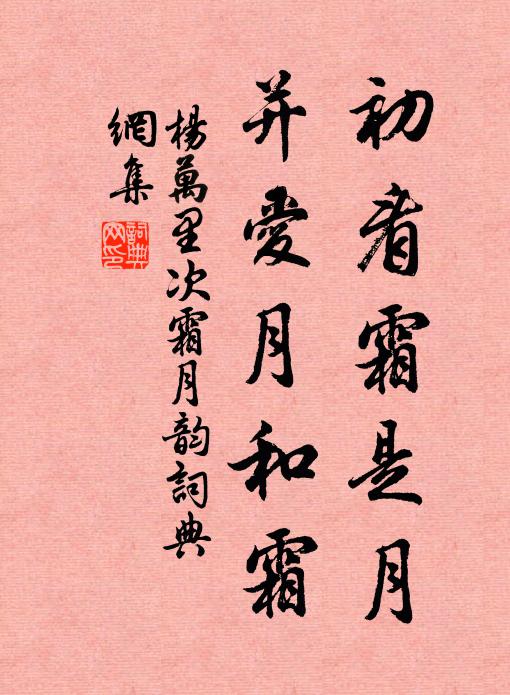 初看霜是月
并愛月和霜
楊萬里次霜月韵詞典
網集
詞典網印